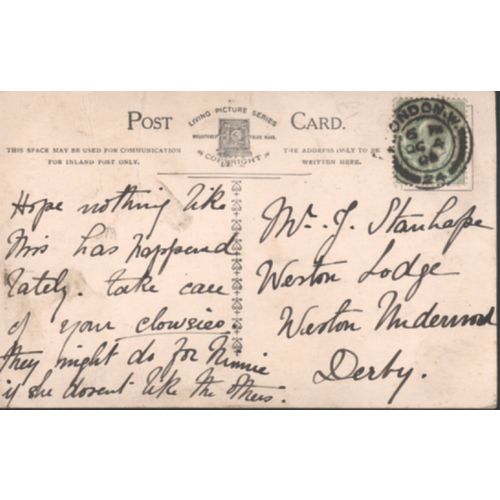 POST CARD.
LIVING PICTURE SERIES
COPYRIGHT
THIS SPACE MAY BE USED FOR COMMUNICATION
FOR INLAND POST ONLY.
THE ADDRESS ONLY TO BE
WRITTEN HERE.
LONDON. W.
6 PM
24
Hope nothing like
this has happend
lately. take care
of your clowsies
they might do for Minnie
if she dosent like the others.
Mr. J. Stanhope
Weston Lodge
Weston Underwood
Derby.